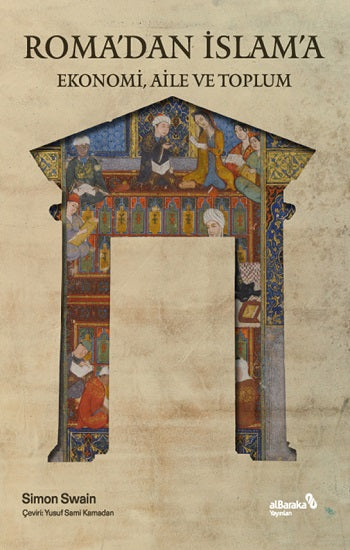 ROMA'DAN İSLAM'A
EKONOMİ, AİLE VE TOPLUM
Simon Swain
Çeviri: Yusuf Sami Kamadan
alBaraka
Yayınları